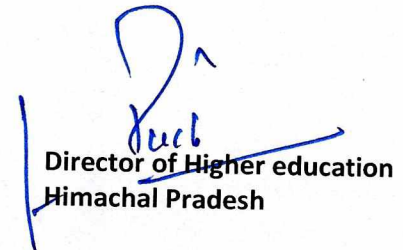 Director of Higher education
Himachal Pradesh